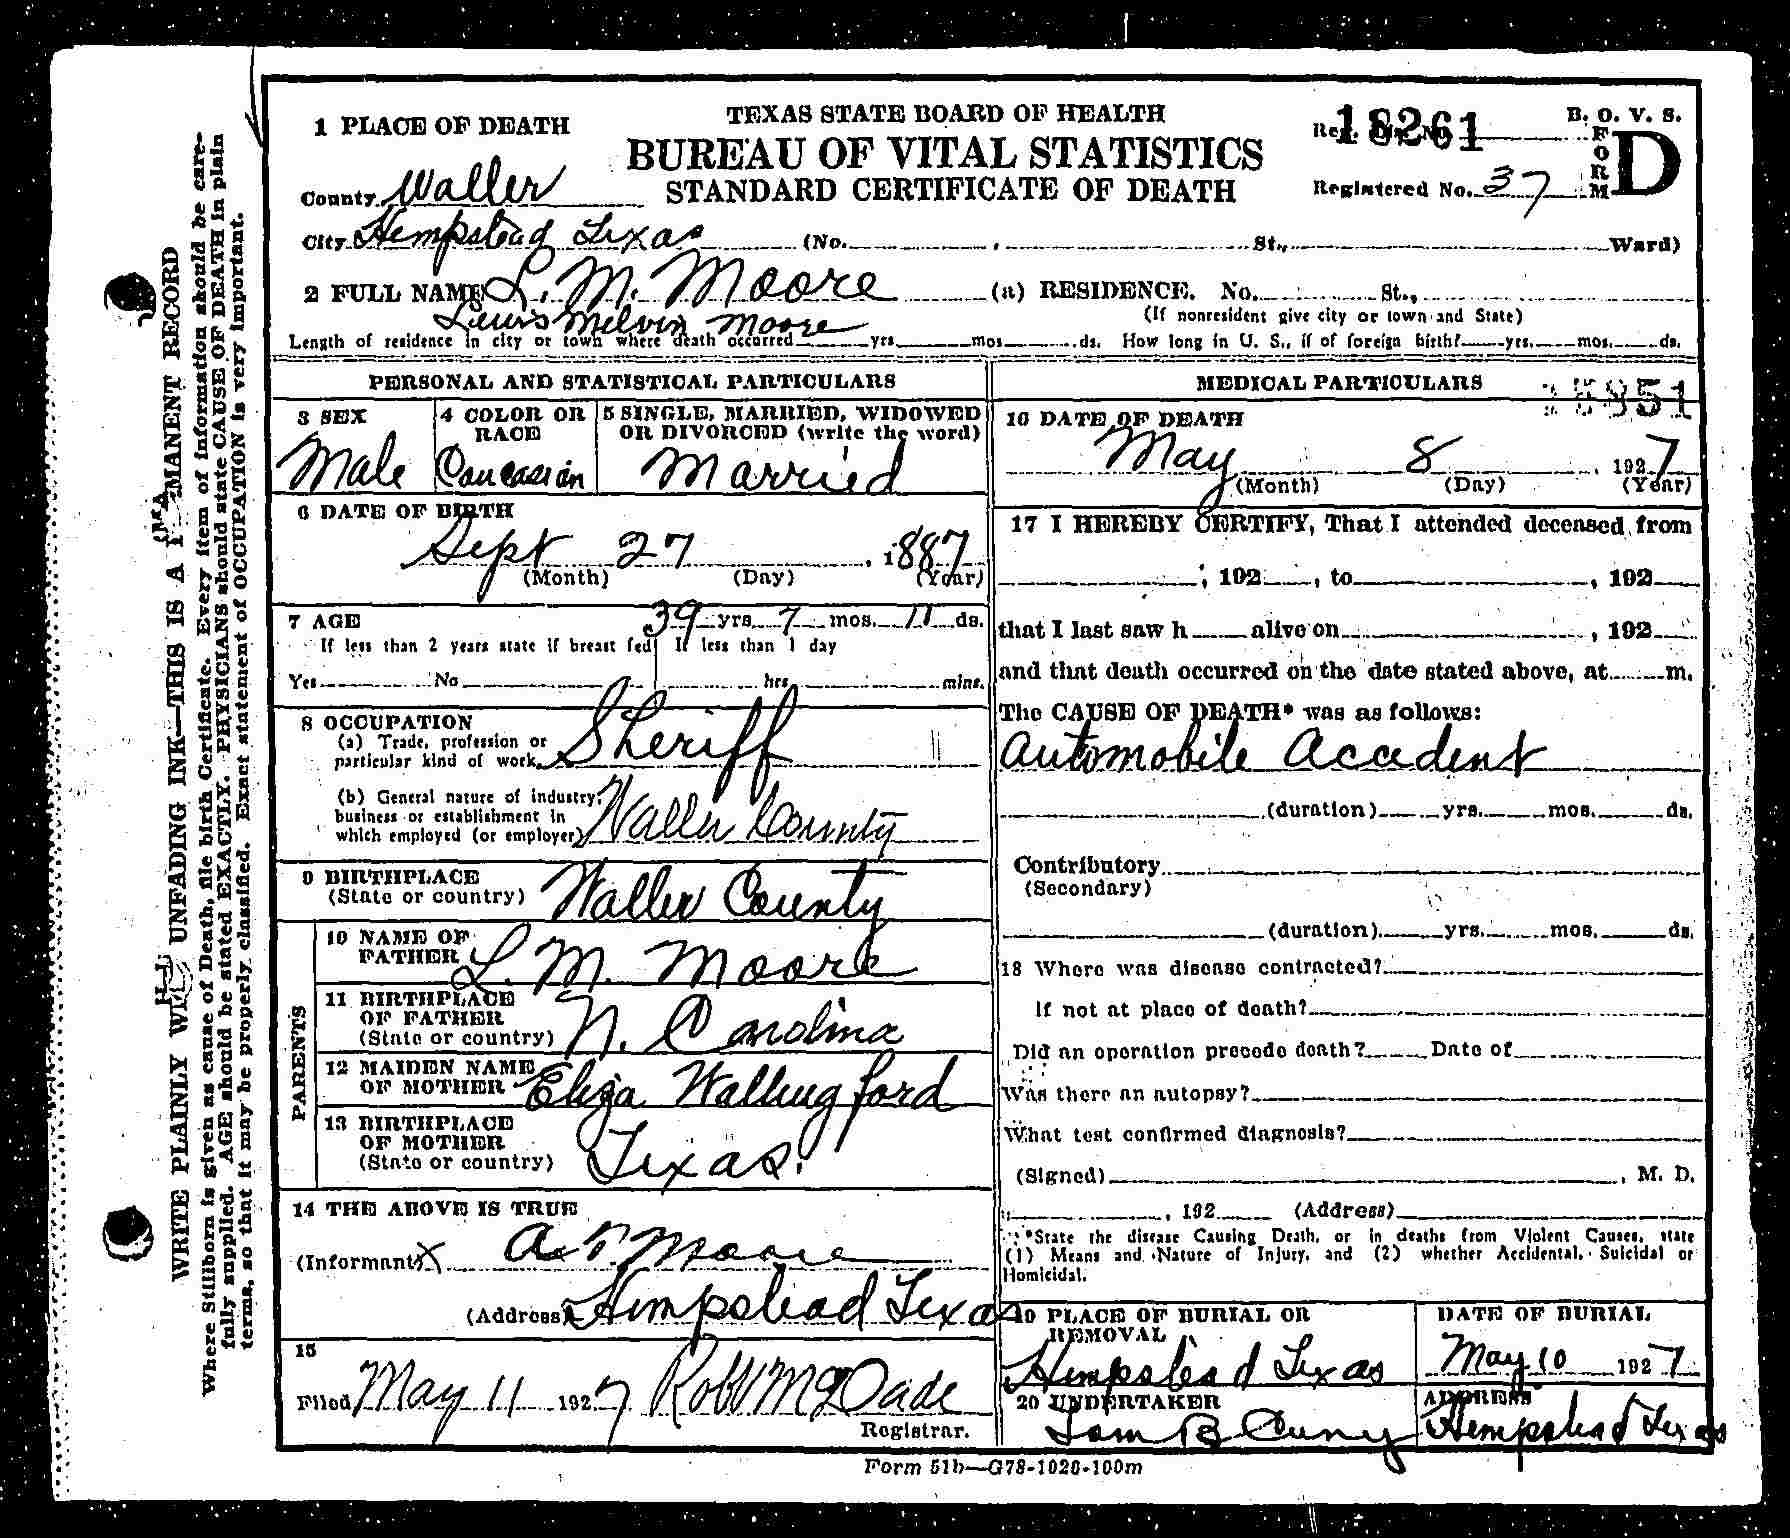 TEXAS STATE BOARD OF HEALTH
BUREAU OF VITAL STATISTICS
STANDARD CERTIFICATE OF DEATH
18261
B. O. V. S.
FORM D
Registered No. 37
1 PLACE OF DEATH
County Waller
City Hempstead Texas (No. , St., Ward)
2 FULL NAME L. M. Moore (a) RESIDENCE. No. St.,
Lewis Melvin Moore (If nonresident give city or town and State)
Length of residence in city or town where death occurred yrs. mos. ds. How long in U. S., if of foreign birth? yrs. mos. ds.
PERSONAL AND STATISTICAL PARTICULARS
3 SEX
Male
4 COLOR OR RACE
Caucasian
5 SINGLE, MARRIED, WIDOWED
OR DIVORCED (write the word)
Married
6 DATE OF BIRTH
Sept 27, 1887
(Month) (Day) (Year)
7 AGE 39 yrs. 7 mos. 11 ds.
If less than 2 years state if breast fed If less than 1 day
Yes No hrs. mins.
8 OCCUPATION
(a) Trade, profession or
particular kind of work Sheriff
(b) General nature of industry,
business or establishment in
which employed (or employer) Waller County
9 BIRTHPLACE
(State or country) Waller County
PARENTS
10 NAME OF
FATHER L. M. Moore
11 BIRTHPLACE
OF FATHER
(State or country) N. Carolina
12 MAIDEN NAME
OF MOTHER Eliza Walling ford
13 BIRTHPLACE
OF MOTHER
(State or country) Texas.
14 THE ABOVE IS TRUE
(Informant) X A. T. Moore
(Address) Hempstead Texas
15
Filed May 11 1927 Robt McDade
Registrar.
MEDICAL PARTICULARS
16 DATE OF DEATH
May 8, 1927
(Month) (Day) (Year)
17 I HEREBY CERTIFY, That I attended deceased from
, 192 , to , 192
that I last saw h alive on , 192
and that death occurred on the date stated above, at m.
The CAUSE OF DEATH* was as follows:
Automobile Accident
(duration) yrs. mos. ds.
Contributory
(Secondary)
(duration) yrs. mos. ds.
18 Where was disease contracted?
If not at place of death?
Did an operation precede death? Date of
Was there an autopsy?
What test confirmed diagnosis?
(Signed) , M. D.
, 192 (Address)
*State the disease Causing Death, or in deaths from Violent Causes, state
(1) Means and Nature of Injury, and (2) whether Accidental, Suicidal or
Homicidal.
19 PLACE OF BURIAL OR
REMOVAL
Hempstead Texas
DATE OF BURIAL
May 10 1927
20 UNDERTAKER
Tom B Cuny
ADDRESS
Hempstead Texas
Form 51b—G78-1026-100m
WRITE PLAINLY WITH UNFADING INK—THIS IS A PERMANENT RECORD
Where Stillborn is given as cause of Death, file birth Certificate. Every item of information should be care-
fully supplied. AGE should be stated EXACTLY. PHYSICIANS should state CAUSE OF DEATH in plain
terms, so that it may be properly classified. Exact statement of OCCUPATION is very important.